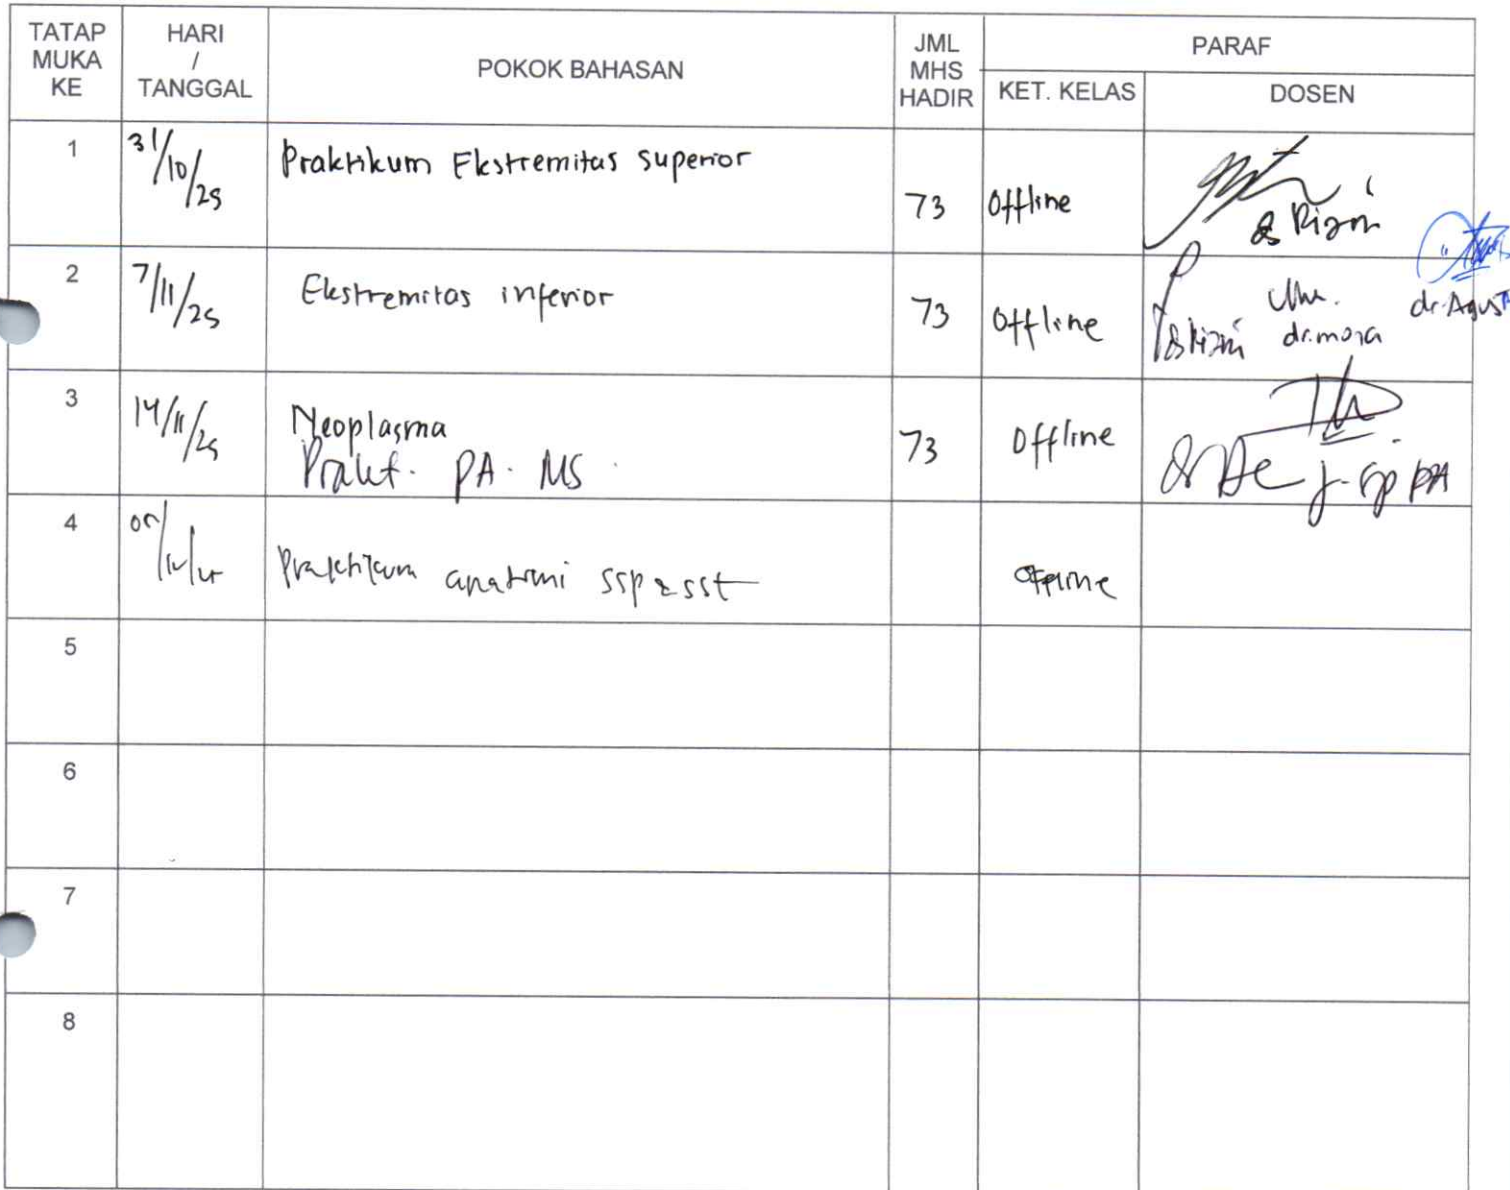 TATAP MUKA KE
HARI / TANGGAL
POKOK BAHASAN
JML MHS HADIR
PARAF
KET. KELAS
DOSEN
1 31/10/25 Praktikum Ekstremitas superior 73 Offline dr Rizni
2 7/11/25 Ekstremitas inferior 73 Offline dr Rizni dr.mora dr.Agust
3 14/11/25 Neoplasma 73 Offline
Prakt. PA. MS Sp PA
4 Praktikum anatomi ssp & sst Offline
5
6
7
8